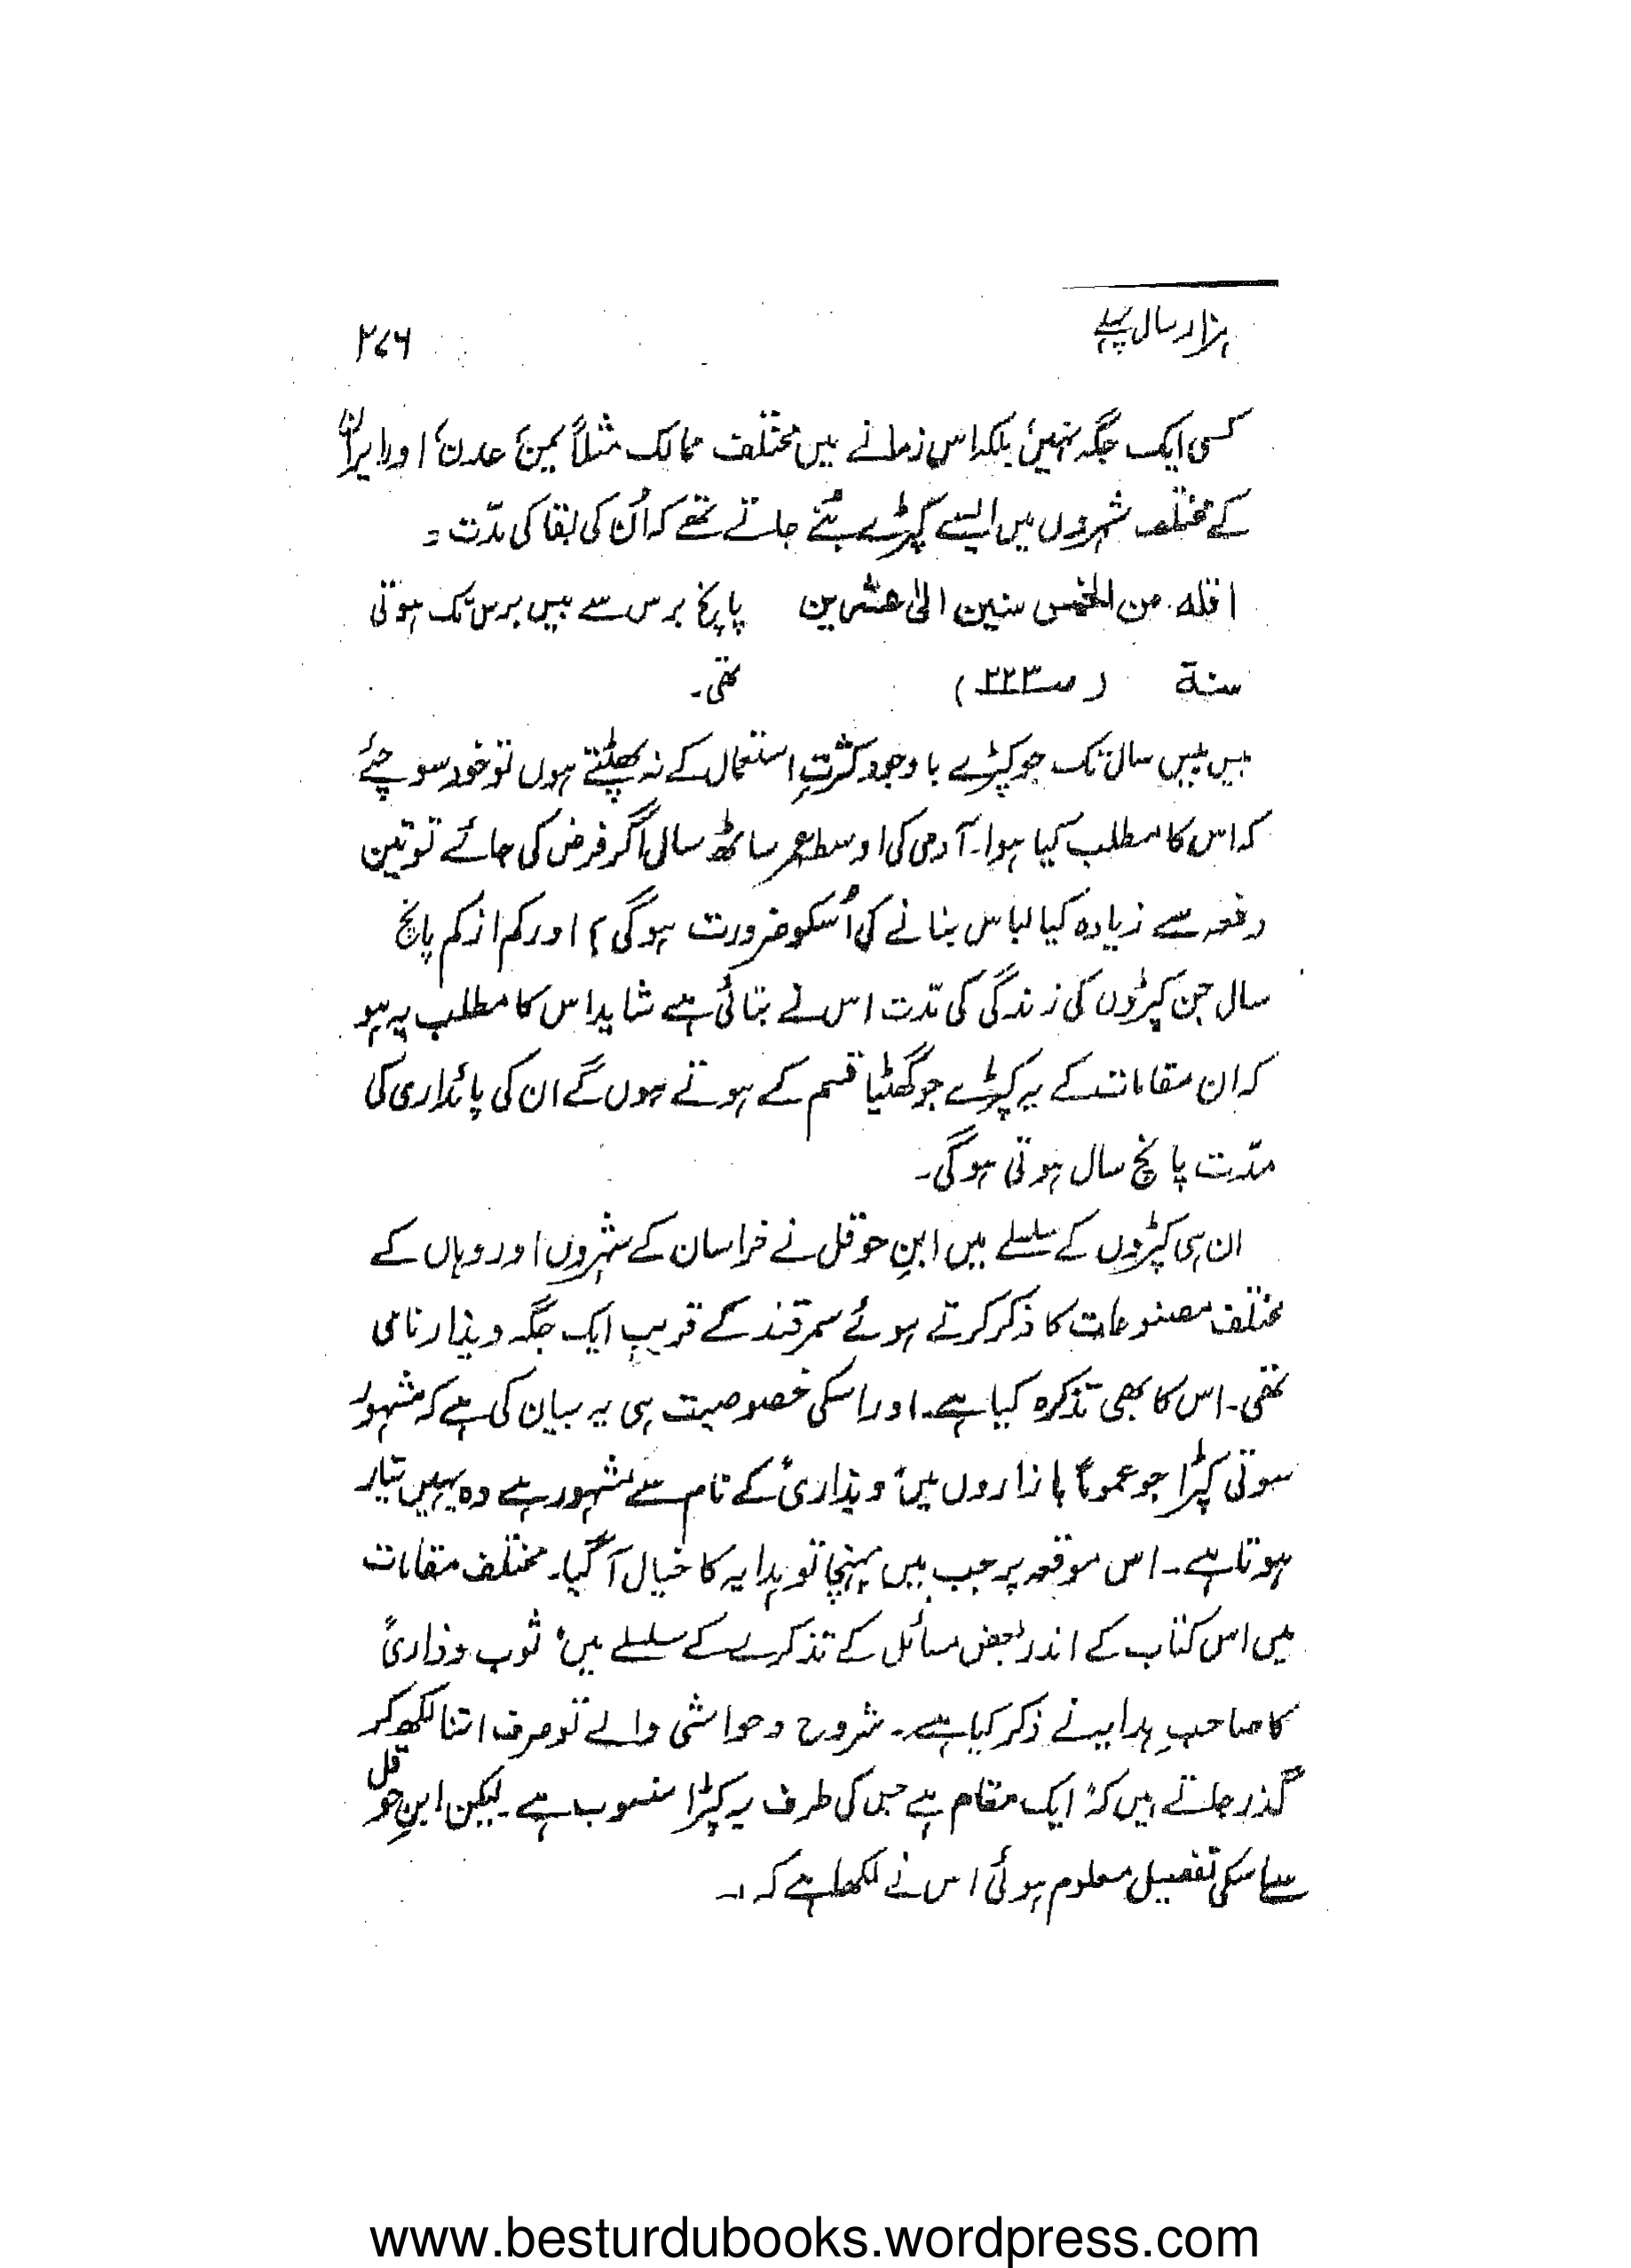 ہزار سال پہلے ۲۷۶
کسی ایک جگہ نہیں، بلکہ اس زمانے میں مختلف ممالک مثلاً یمن، عدن، اور ایران
کے مختلف شہروں میں ایسے کپڑے بُنے جاتے تھے کہ اُن کی بقا کی مدّت :
اقله من الخمس سنین الیٰ عشرین پانچ برس سے بیس برس تک ہوتی
سنة (ص ۲۲۳) تھی۔
بیس بیس سال تک جو کپڑے باوجود کثرتِ استعمال کے نہ پھٹتے ہوں تو خود سوچئے
کہ اس کا مطلب کیا ہوا۔ آدمی کی اوسط عمر ساٹھ سال اگر فرض کی جائے تو تین
دفعہ سے زیادہ کیا لباس بنانے کی اُسکو ضرورت ہوگی؟ اور کم از کم پانچ
سال جن کپڑوں کی زندگی کی مدّت اس نے بتائی ہے شاید اس کا مطلب یہ ہو
کہ ان مقامات کے یہ کپڑے جو گھٹیا قسم کے ہوتے ہوں گے ان کی پائداری کی
مدّت پانچ سال ہوتی ہوگی۔
ان ہی کپڑوں کے سلسلے میں ابنِ حوقل نے خراسان کے شہروں اور وہاں کے
مختلف مصنوعات کا ذکر کرتے ہوئے سمرقند کے قریب ایک جگہ ویذار نامی
تھی۔ اس کا بھی تذکرہ کیا ہے۔ اور اسکی خصوصیت ہی یہ بیان کی ہے کہ مشہور
سوتی کپڑا جو عموماً بازاروں میں ”ویذاری“ کے نام سے مشہور ہے وہ یہیں تیار
ہوتا ہے۔ اس موقعہ پر جب میں پہنچا تو ہدایہ کا خیال آگیا۔ مختلف مقامات
میں اس کتاب کے اندر بعض مسائل کے تذکرے کے سلسلے میں ”ثوب وذاری“
کا صاحبِ ہدایہ نے ذکر کیا ہے۔ شروح و حواشی والے تو صرف اتنا لکھ کر
گذر جاتے ہیں کہ ایک مقام ہے جس کی طرف یہ کپڑا منسوب ہے۔ لیکن ابنِ حوقل
سے اسکی تفصیل معلوم ہوئی اس نے لکھا ہے کہ :۔
www.besturdubooks.wordpress.com